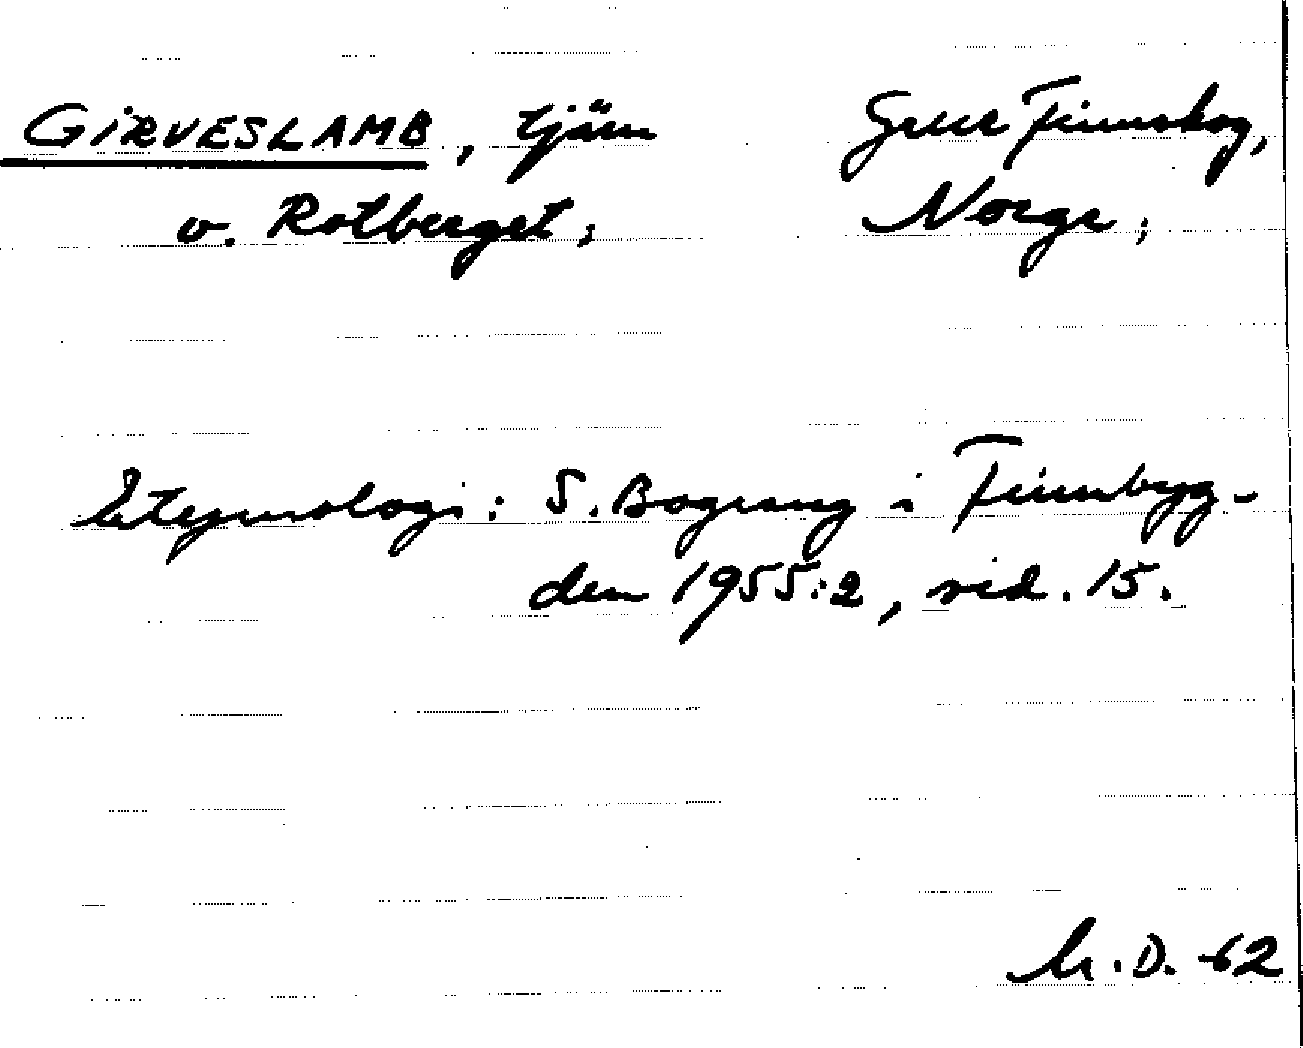 GIRVESLAMB, tjärn Grue Finnskog,
v. Rotberget, Norge;
Etymologi: S. Bograng i Finnbyg-
den 1955:2, sid. 15.
M.D. -62